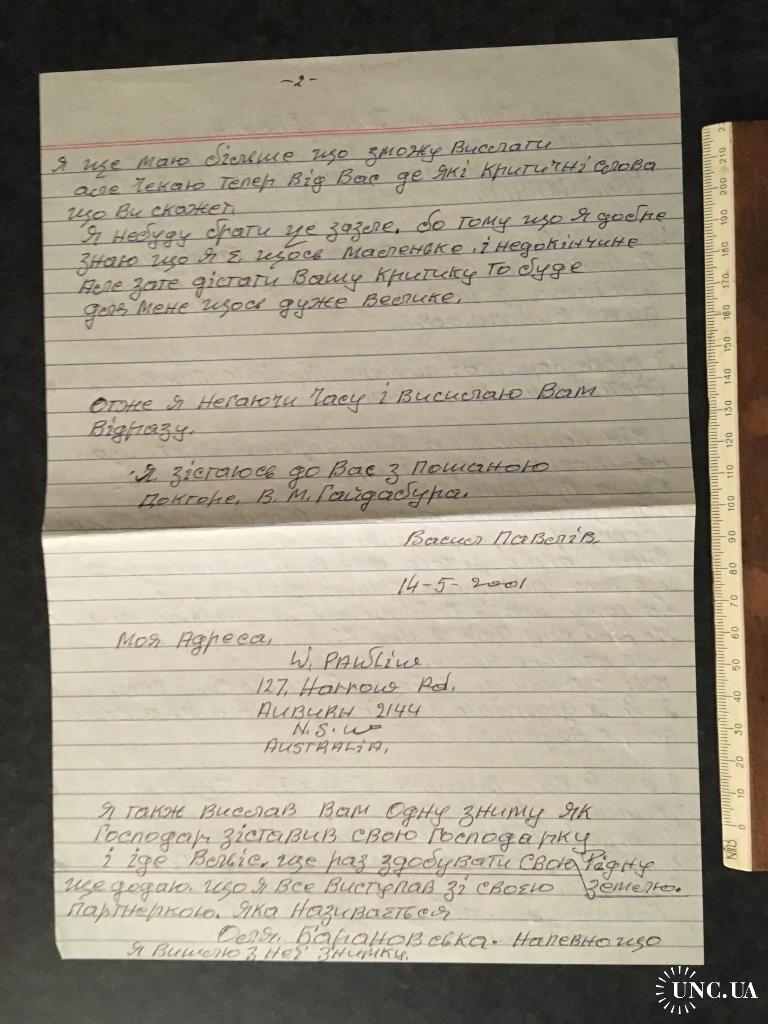 -2-
Я ще маю більше що зможу вислати
але чекаю тепер від Вас де які критичні слова
що Ви скажет.
Я небуду брати це зазле. бо тому що я добре
знаю що я є щось маленьке. і недокінчине
Але зате дістати Вашу критику то буде
для мене щось дуже велике.
Отже я негаючи часу і висилаю Вам
відразу.
Я зістаюсь до Вас з пошаною
Докторе. В. М. Гайдабура.
Василь Павлів.
14-5-2001
Моя Адреса,
W. PAWLiw
127, Harrow Rd.
AUBURN 2144
N.S.W
AUSTRALiA.
Я також вислав Вам одну зниму як
Господар зіставив свою господарку
і іде Вліс, ще раз здобувати свою Рідну
землю.
ще додаю що я все виступав зі своєю
партнеркою. яка називається
Оля Барановська. Напевно що
я вишлю з неї знимку.
UNC.UA
210 200 190 180 170 160 150 140 130 120 110 100 90 80 70 60 50 40 30 20 10 0